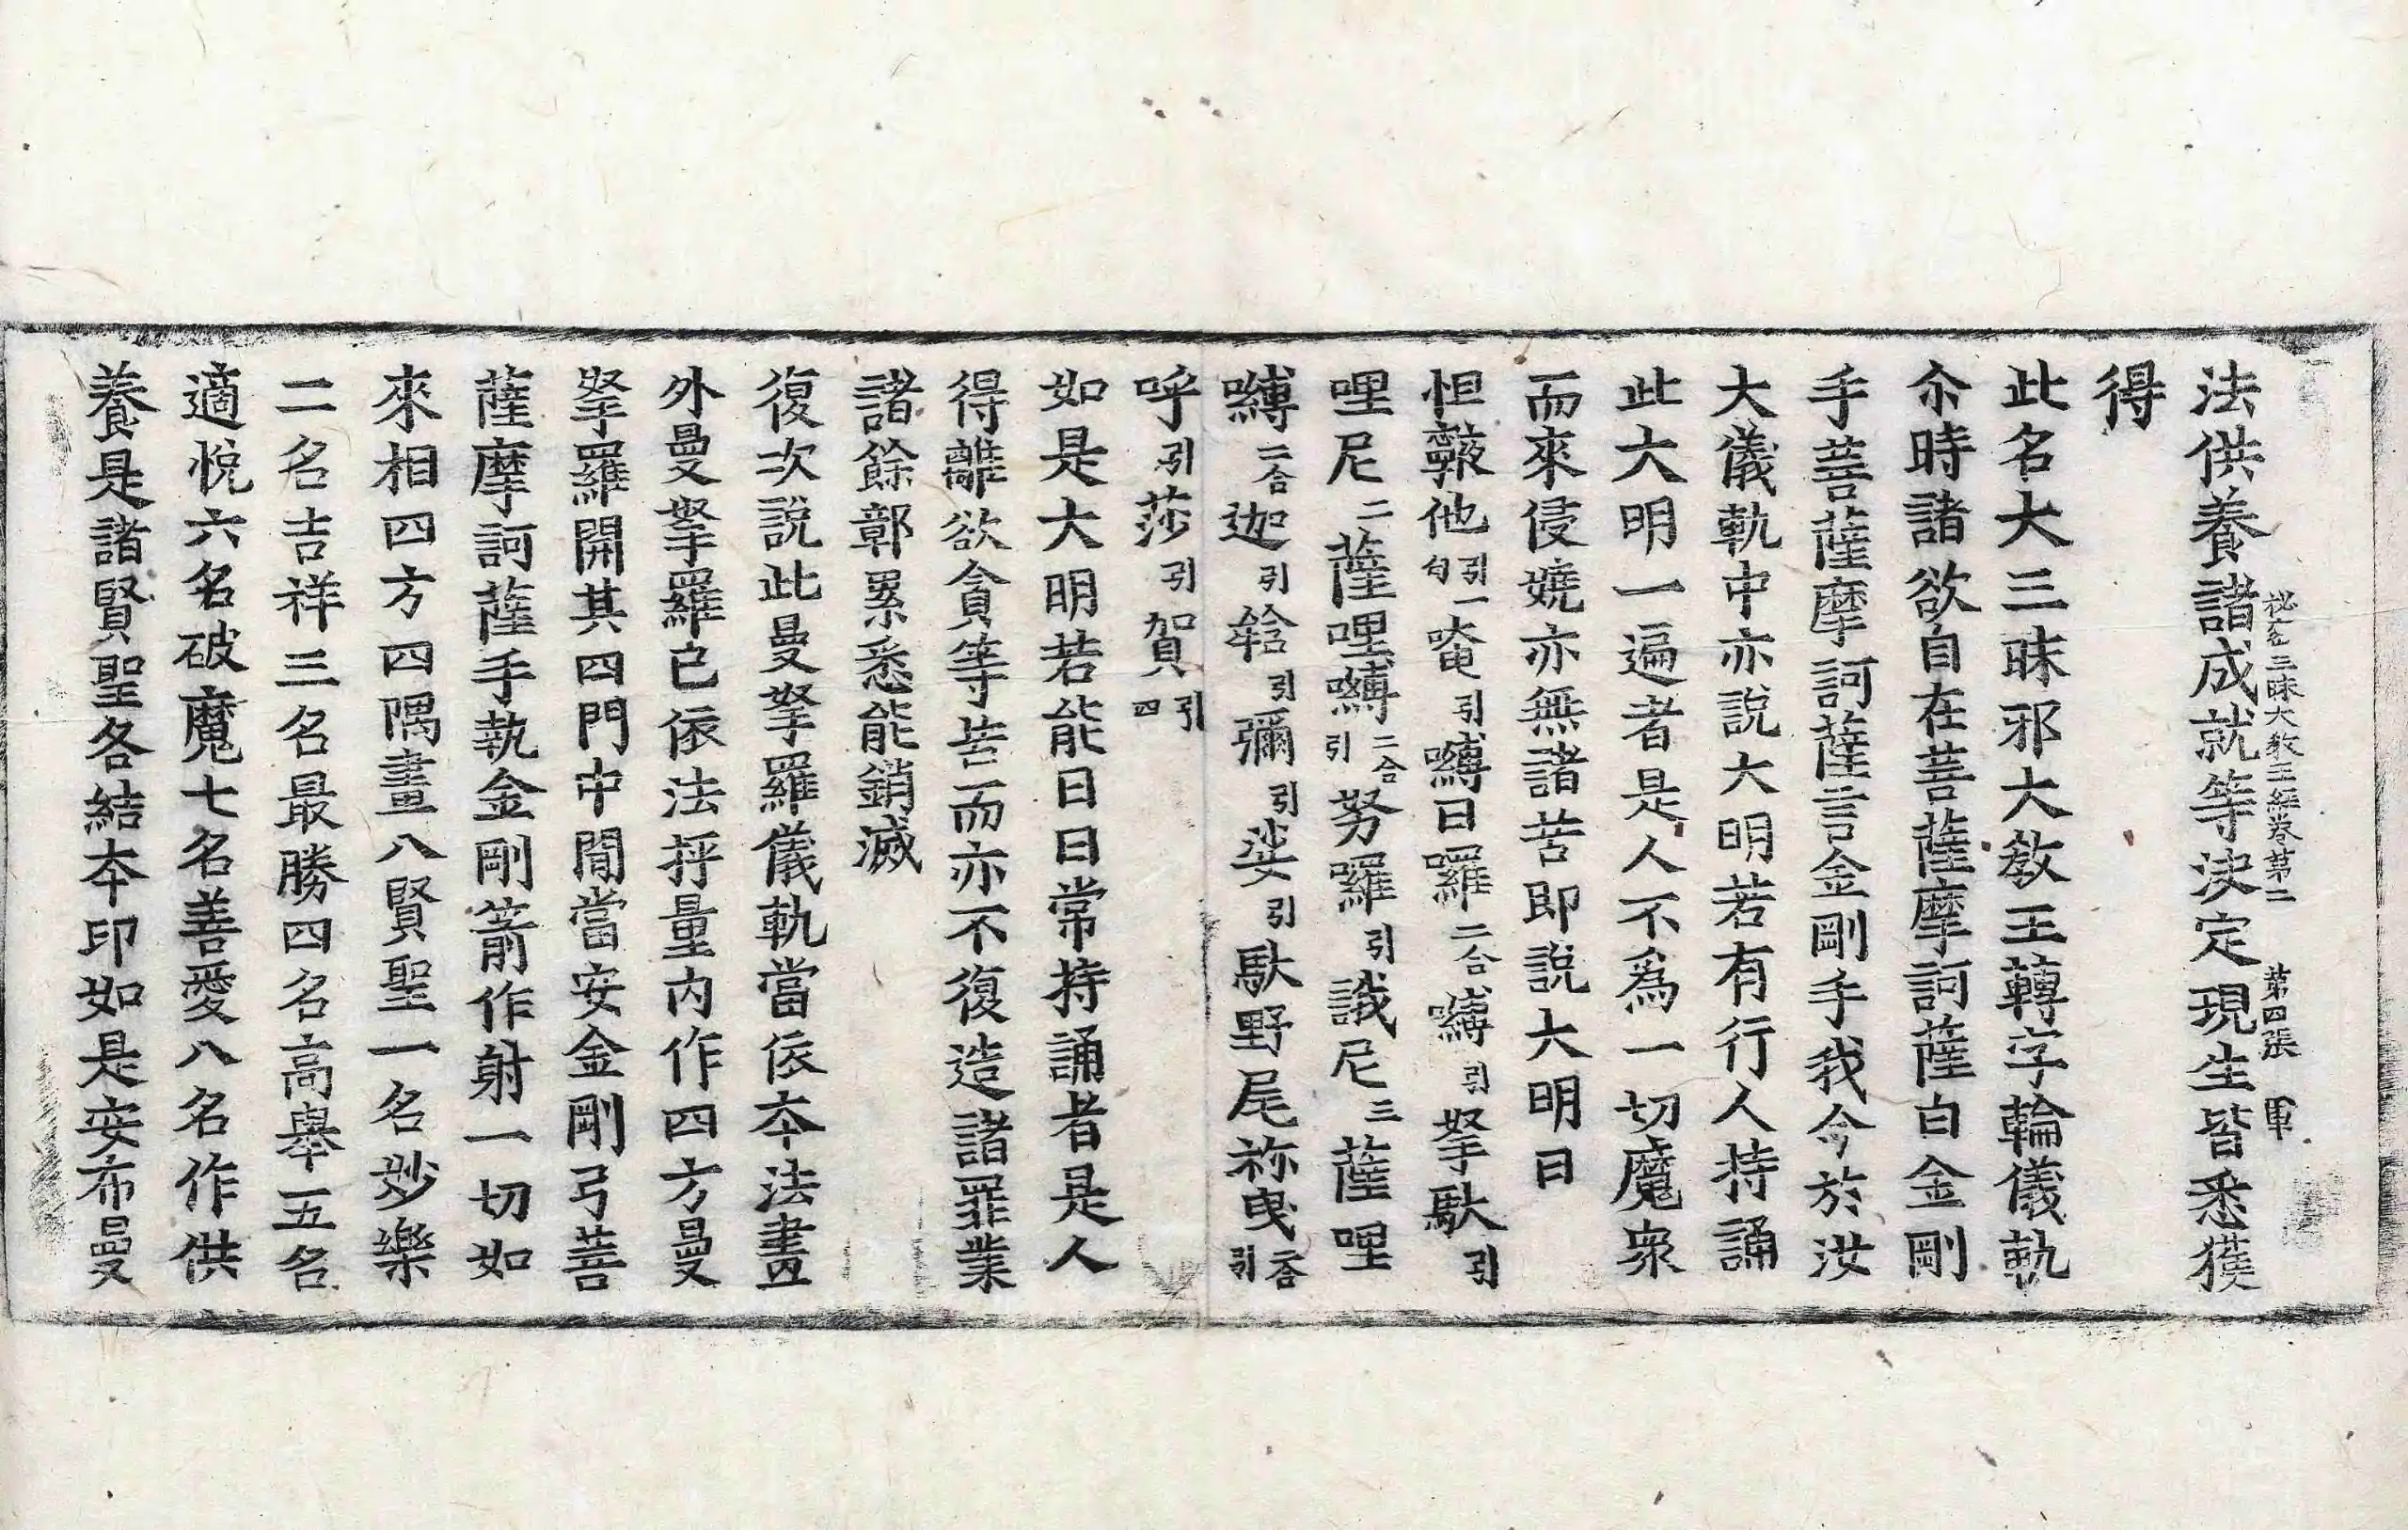 秘密三昧大教王經卷第二　第四張　軍
法供養諸成就等決定現生皆悉獲
得
此名大三昧邪大教王轉字輪儀軌
尒時諸欲自在菩薩摩訶薩白金剛
手菩薩摩訶薩言金剛手我今於汝
大儀軌中亦說大明若有行人持誦
此大明一遍者是人不爲一切魔衆
而來侵嬈亦無諸苦即說大明曰
怛䩭他引一句唵引嚩日囉二合嚩引拏馱引
哩尼二薩哩嚩二合引努囉引誐尼三薩哩
嚩二合迦引𤚥引彌引娑引馱野尾祢曳二合引
呼引莎引賀引四
如是大明若能日日常持誦者是人
得離欲貪等苦而亦不復造諸罪業
諸餘鄣累悉能銷滅
復次說此曼拏羅儀軌當依夲法畫
外曼拏羅已依法抨量內作四方曼
拏羅開其四門中間當安金剛弓菩
薩摩訶薩手執金剛箭作射一切如
來相四方四隅畫八賢聖一名妙樂
二名吉祥三名最勝四名高舉五名
適悅六名破魔七名善愛八名作供
養是諸賢聖各結夲印如是安布曼